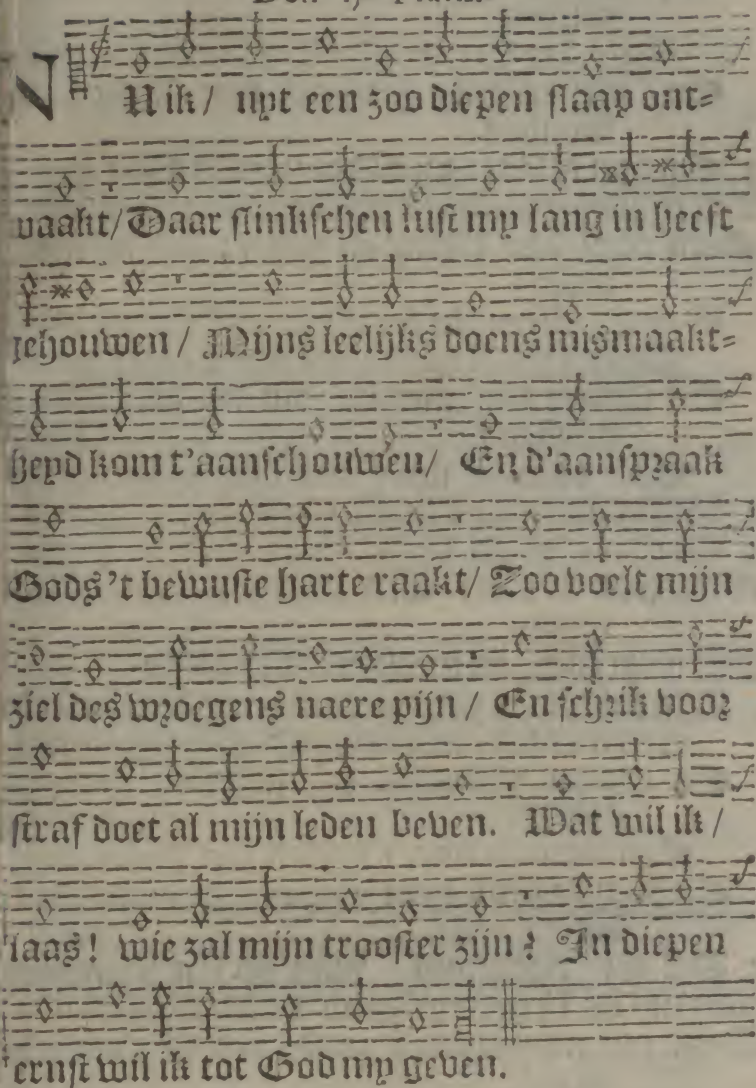 NU ik / uyt een zoo diepen slaap ont-
waakt / Daar slinkschen lust my lang in heeft
gehouwen / Mijns leelijks doens mismaakt-
heyd kom t'aanschouwen / En d'aanspraak
Gods 't bewuste harte raakt / Zoo voelt mijn
ziel des wroegens naere pijn / En schrik voor
straf doet al mijn leden beven. Wat wil ik /
'laas! wie zal mijn trooster zijn? In diepen
ernst wil ik tot God my geven.